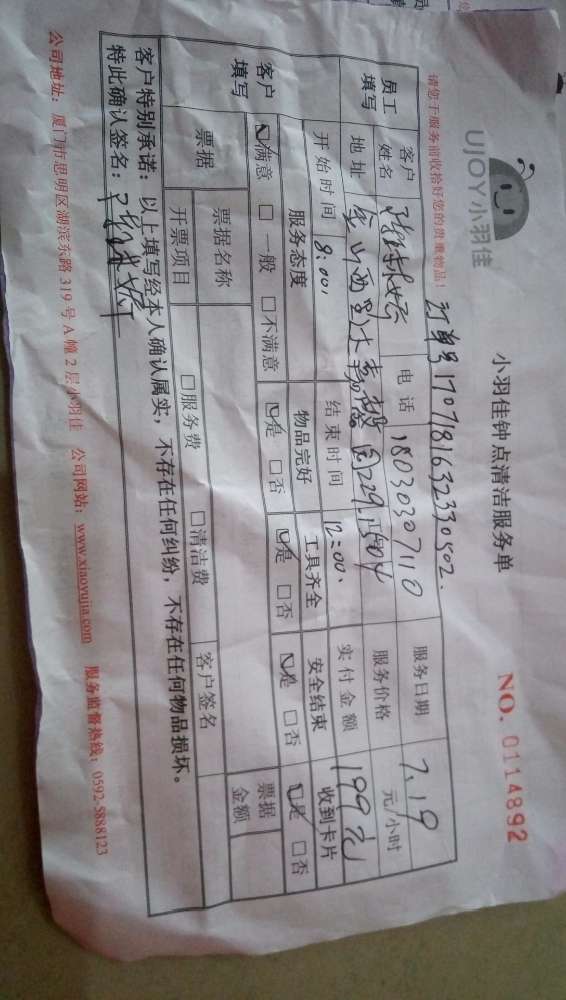 UJOY小羽佳
小羽佳钟点清洁服务单
NO. 0114892
请您于服务前收拾好您的贵重物品!
订单号1707181632330502.
员工填写
客户姓名
电话 18030307110
服务日期 7.19
地址 金山西里
服务价格 元/小时
开始时间 8:00
结束时间 12:00
实付金额 199元
客户填写
服务态度 物品完好 工具齐全 安全结束 收到卡片
☑满意 □一般 □不满意 ☑是 □否 ☑是 □否 ☑是 □否 ☑是 □否
票据
票据名称 客户签名 票据金额
开票项目 □服务费 □清洁费
客户特别承诺:以上填写经本人确认属实,不存在任何纠纷,不存在任何物品损坏。
特此确认签名:
公司地址:厦门市思明区湖滨东路319号A幢2层小羽佳 公司网站:www.xiaoyujia.com 服务监督热线:0592-5888123